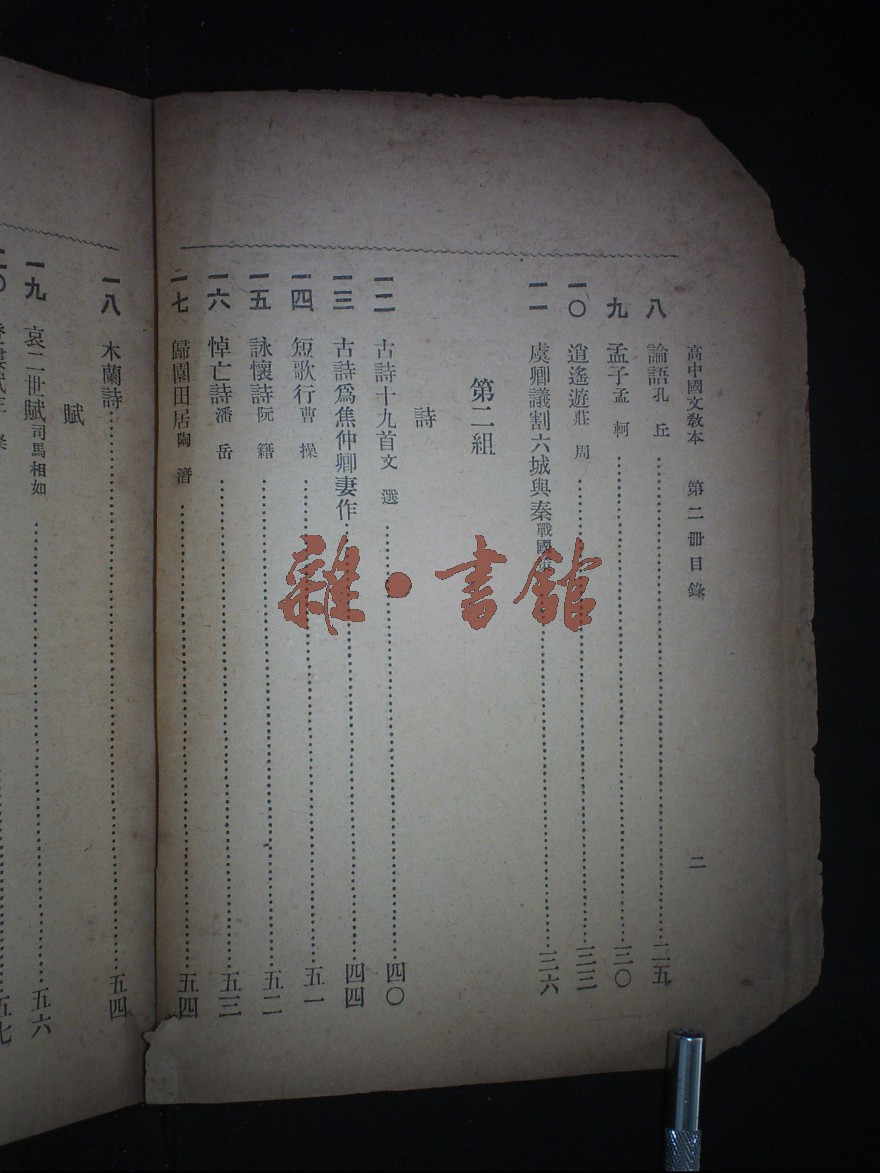 高中國文敎本 第二冊目錄 二
八 論語 孔丘 二五
九 孟子 孟軻 三〇
一〇 逍遙遊 莊周 三三
一一 虞卿議割六城與秦 戰國 三六
第二組
詩
一二 古詩十九首 文選 四〇
一三 古詩爲焦仲卿妻作 四四
一四 短歌行 曹操 五一
一五 詠懷詩 阮籍 五二
一六 悼亡詩 潘岳 五三
一七 歸園田居 陶潛 五四
一八 木蘭詩 五四
賦
一九 哀二世賦 司馬相如 五六
二〇 五七
雜·書館